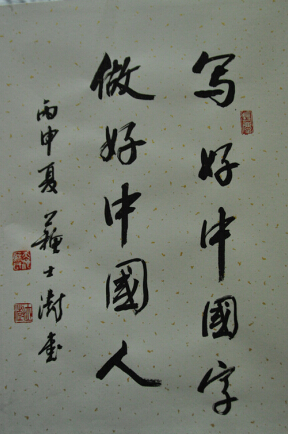 写好中國字
做好中國人
丙申夏 蘇士澍書